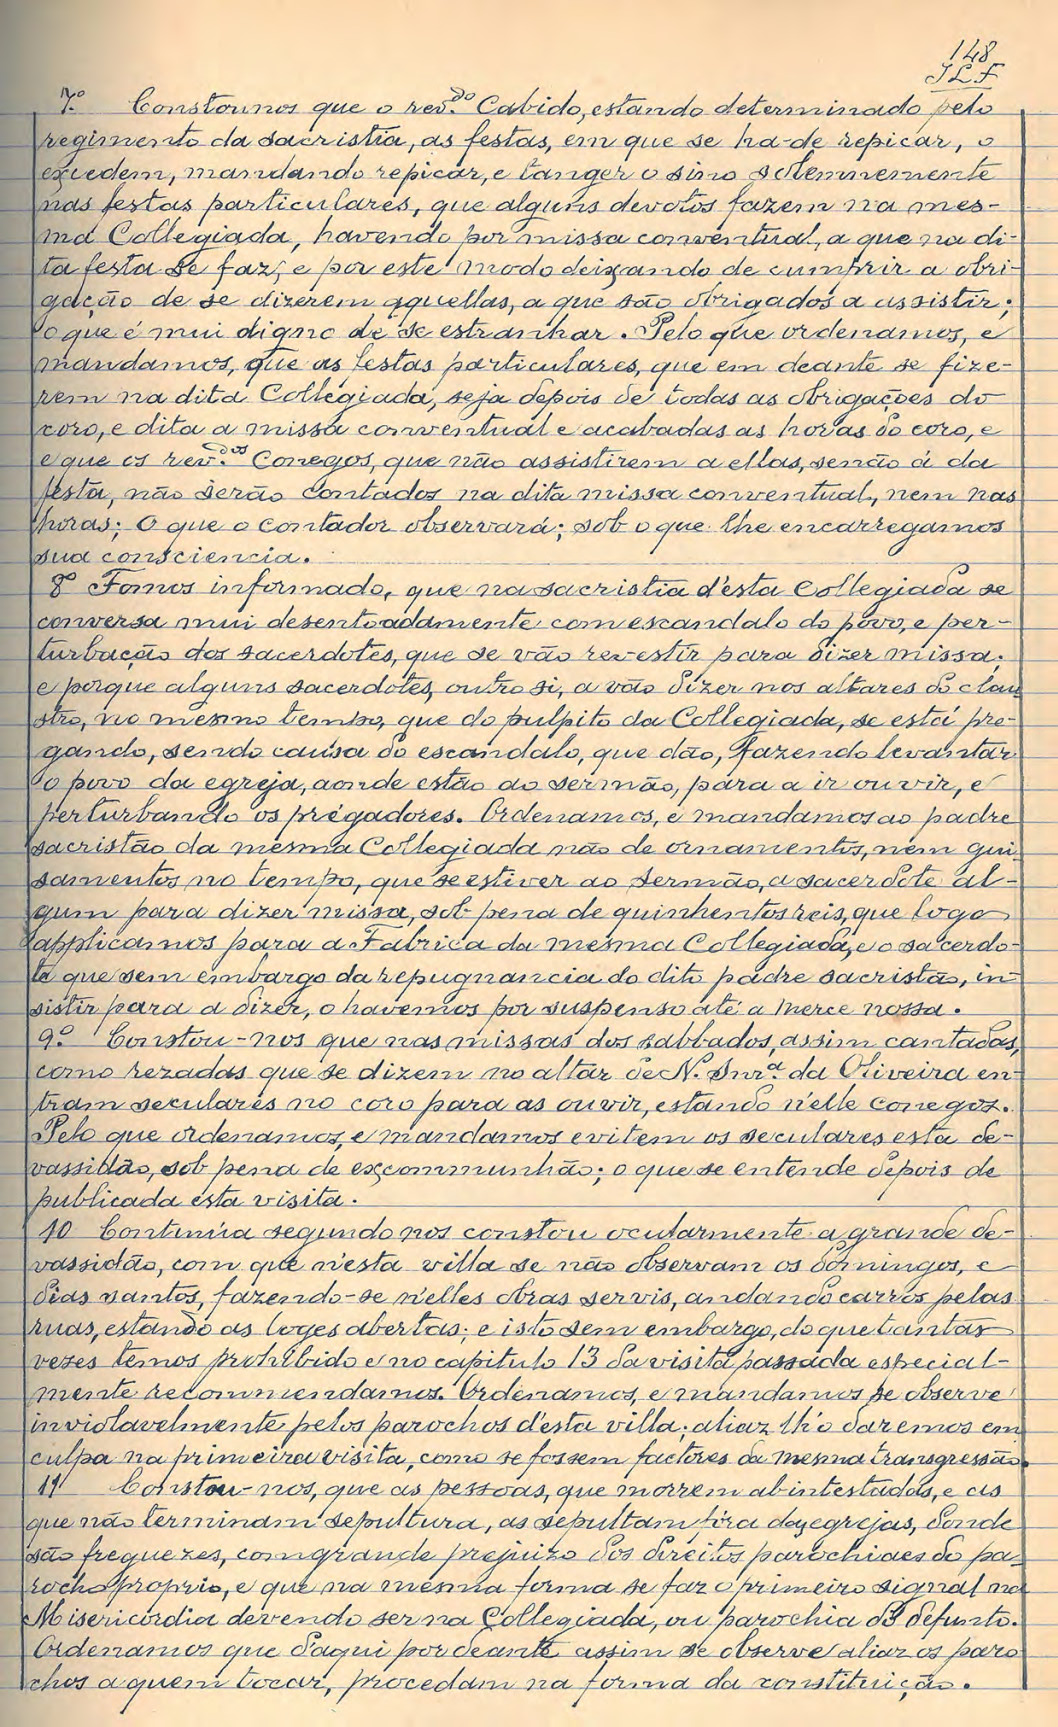 148
JLF
7.º Constounos que o rev.do Cabido, estando determinado pelo
regimento da sacristia, as festas, em que se ha-de repicar, o
excedem, mandando repicar, e tanger o sino solemnemente
nas festas particulares, que alguns devotos fazem na mes-
ma Collegiada, havendo por missa conventual, a que na di-
ta festa se faz; e por este modo deixando de cumprir a obri-
gação de se dizerem aquellas, a que são obrigados a assistir;
o que é mui digno de se estranhar. Pelo que ordenamos, e
mandamos, que as festas particulares, que em deante se fize-
rem na dita Collegiada, seja depois de todas as obrigações do
coro, e dita a missa conventual e acabadas as horas do coro, e
e que os rev.dos Conegos, que não assistirem a ellas, senão á da
festa, não serão contados na dita missa conventual, nem nas
horas; O que o contador observará; sob o que lhe encarregamos
sua consciencia.
8º Fomos informado, que na sacristia d'esta Collegiada se
conversa mui desentoadamente com escandalo do povo, e per-
turbação dos sacerdotes, que se vão revestir para dizer missa;
e porque alguns sacerdotes, outro si, a vão dizer nos altares do clau
stro, no mesmo tempo, que do pulpito da Collegiada, se está pre-
gando, sendo causa do escandalo, que dão, fazendo levantar
o povo da egreja, aonde estão ao sermão, para a ir ouvir, e
perturbando os prégadores. Ordenamos, e mandamos ao padre
sacristão da mesma Collegiada não de ornamentos, nem gui-
samentos no tempo, que se estiver ao sermão, a sacerdote al-
gum para dizer missa, sob pena de quinhentos reis, que logo
applicamos para a Fabrica da mesma Collegiada, e o sacerdo-
te que sem embargo da repugnancia do dito padre sacristão, in-
sistir para a dizer, o havemos por suspenso até a merce nossa.
9.º Constou-nos que nas missas dos sabbados, assim cantadas,
como rezadas que se dizem no altar de N. Snr.ª da Oliveira en-
tram seculares no coro para as ouvir, estando n'elle conegos.
Pelo que ordenamos, e mandamos evitem os seculares esta de-
vassidão, sob pena de excommunhão; o que se entende depois de
publicada esta visita.
10 Continúa segundo nos constou ocularmente a grande de-
vassidão, com que n'esta villa se não observam os domingos, e
dias santos, fazendo-se n'elles obras servis, andando carros pelas
ruas, estando as loges abertas; e isto sem embargo, do que tantas
vezes temos prohibido e no capitulo 13 da visita passada especial-
mente recommendamos. Ordenamos, e mandamos se observe
inviolavelmente pelos parochos d'esta villa; aliaz lh'o daremos em
culpa na primeira visita, como se fossem factores da mesma transgressão.
11 Constou-nos, que as pessoas, que morrem abintestados, e as
que não terminam sepultura, as sepultam fóra das egrejas, donde
são freguezes, com grande prejuizo dos direitos parochiaes do pa-
rocho proprio, e que na mesma forma se faz o primeiro signal na
Misericordia devendo ser na Collegiada, ou parochia do defunto.
Ordenamos que d'aqui por deante assim se observe aliaz os paro
chos a quem tocar, procedam na forma da constituição.